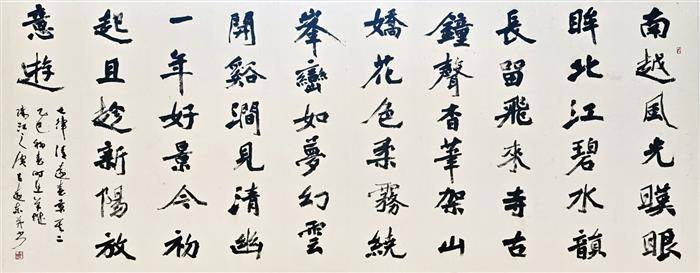 南越風光暎眼
眸北江碧水韻
長留飛來寺古
鐘聲杳華架山
嬌花色柔霧繞
峯巒如夢幻雲
開谿澗見清幽
一年好景今初
起且趁新陽放
意遊
七律清遠春景其二
乙巳初春時
珠江之